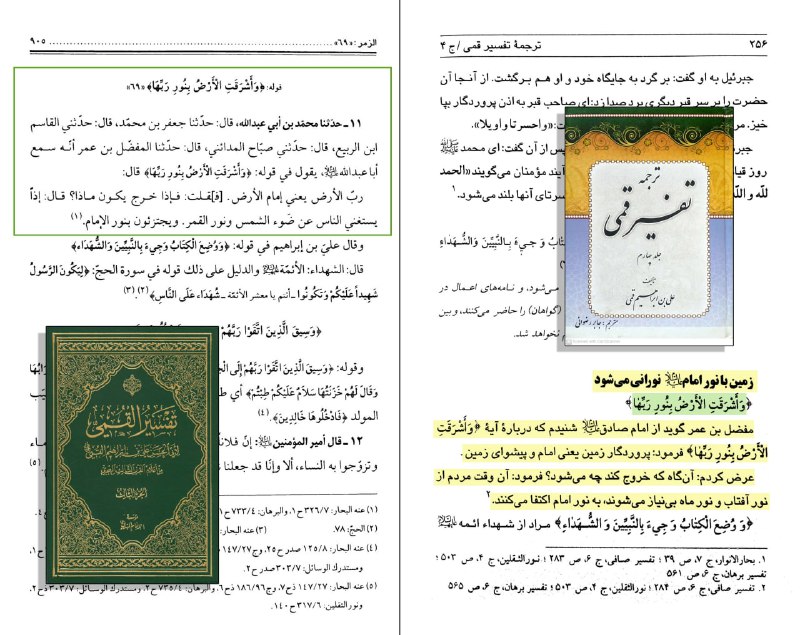 ۲۵۶ ترجمهٔ تفسیر قمی / ج ۴
جبرئیل به او گفت: بر گرد به جایگاه خود و او هم برگشت. از آنجا آن
حضرت را بر سر قبر دیگری برد صدا زد: ای صاحب قبر به اذن پروردگار بپا
خیز.
«واحسرتا و اویلا».
پس از آن گفت: ای محمد
روز قیا
آیند مؤمنان می‌گویند «الحمد
لله و الل
سرتای آنها بلند می‌شود.۱
ترجمه
تفسیر قمی
جلد چهارم
علی بن ابراهیم قمی
مترجم: جابر رضوانی
بُ وَ جِيءَ بِالنَّبِيِّينَ وَالشُّهَدَاءِ
می‌شود، و نامه‌های اعمال در
(گواهان) را حاضر می‌کنند، و بین
م نخواهد شد.
زمین با نور امام نورانی می‌شود
﴿وَأَشْرَقَتِ الْأَرْضُ بِنُورِ رَبِّهَا﴾
مفضل بن عمر گوید از امام صادق شنیدم که دربارهٔ آیهٔ ﴿وَأَشْرَقَتِ
الْأَرْضُ بِنُورِ رَبِّهَا﴾ فرمود: پروردگار زمین یعنی امام و پیشوای زمین.
عرض کردم: آن‌گاه که خروج کند چه می‌شود؟ فرمود: آن وقت مردم از
نور آفتاب و نور ماه بی‌نیاز می‌شوند، به نور امام اکتفا می‌کنند.۲
﴿وَ وُضِعَ الْكِتَابُ وَ جِيءَ بِالنَّبِيِّينَ وَ الشُّهَدَاءِ﴾ مراد از شهداء ائمه
۱. بحارالانوار، ج ۷، ص ۳۹ ؛ تفسیر صافی، ج ۶، ص ۲۸۳ ؛ نورالثقلین، ج ۴، ص ۵۰۳ ؛
تفسیر برهان، ج ۶، ص ۵۶۱
۲. تفسیر صافی، ج ۶، ص ۲۸۴ ؛ نورالثقلین، ج ۴، ص ۵۰۳ ؛ تفسیر برهان، ج ۶، ص ۵۶۵
الزمر: «٦٩» ٩٠٥
قوله: ﴿وَأَشْرَقَتِ الْأَرْضُ بِنُورِ رَبِّهَا﴾ «٦٩»
١١ ـ حدّثنا محمّد بن أبي عبدالله، قال: حدّثنا جعفر بن محمّد، قال: حدّثني القاسم
ابن الربيع، قال: حدّثني صبّاح المدائني، قال: حدّثنا المفضّل بن عمر أنه سمع
أبا عبدالله، يقول في قوله: ﴿وَأَشْرَقَتِ الْأَرْضُ بِنُورِ رَبِّهَا﴾ قال:
ربّ الأرض يعني إمام الأرض. [فـ]قلت: فإذا خرج يكون ماذا؟ قال: إذاً
يستغني الناس عن ضَوء الشمس ونور القمر. ويجتزئون بنور الإمام.(١)
وقال عليّ بن إبراهيم في قوله: ﴿وَوُضِعَ الْكِتَابُ وَجِيءَ بِالنَّبِيِّينَ وَالشُّهَدَاءِ﴾
قال: الشهداء: الأئمّة والدليل على ذلك قوله في سورة الحجّ: ﴿لِيَكُونَ الرَّسُولُ
شَهِيداً عَلَيْكُمْ وَتَكُونُوا ـ أنتم يا معشر الأئمّة ـ شُهَدَاءَ عَلَى النَّاسِ﴾(٢).(٣)
﴿وَسِيقَ الَّذِينَ اتَّقَوْا رَبَّهُمْ
وقوله: ﴿وَسِيقَ الَّذِينَ اتَّقَوْا رَبَّهُمْ إِلَى الْجَ
وَقَالَ لَهُمْ خَزَنَتُهَا سَلَامٌ عَلَيْكُمْ طِبْتُمْ﴾ أي ط
المولد ﴿فَادْخُلُوهَا خَالِدِينَ﴾.(٤)
١٢ ـ قال أمير المؤمنين: إنّ فلانا
وتزوّجوا به النساء، ألا وإنّا قد جعلنا
(٥)
تفسير القمي
الجزء الثالث
(١) عنه البحار: ٣٢٦/٧ ح١، والبرهان: ٧٣٣/٤ ح١
(٢) الحجّ: ٧٨. (٣) عنه البحار:
(٤) عنه البحار: ١٢٥/٨ صدر ح٢٥، وج١٤٧/٢٧
ومستدرك الوسائل: ٣٠٣/٧ صدر ح٢.
(٥) عنه البحار: ١٤٧/٢٧ ذح٧، وج١٨٦/٩٦
ونور الثقلين: ٣١٧/٦ ح١٤٠.